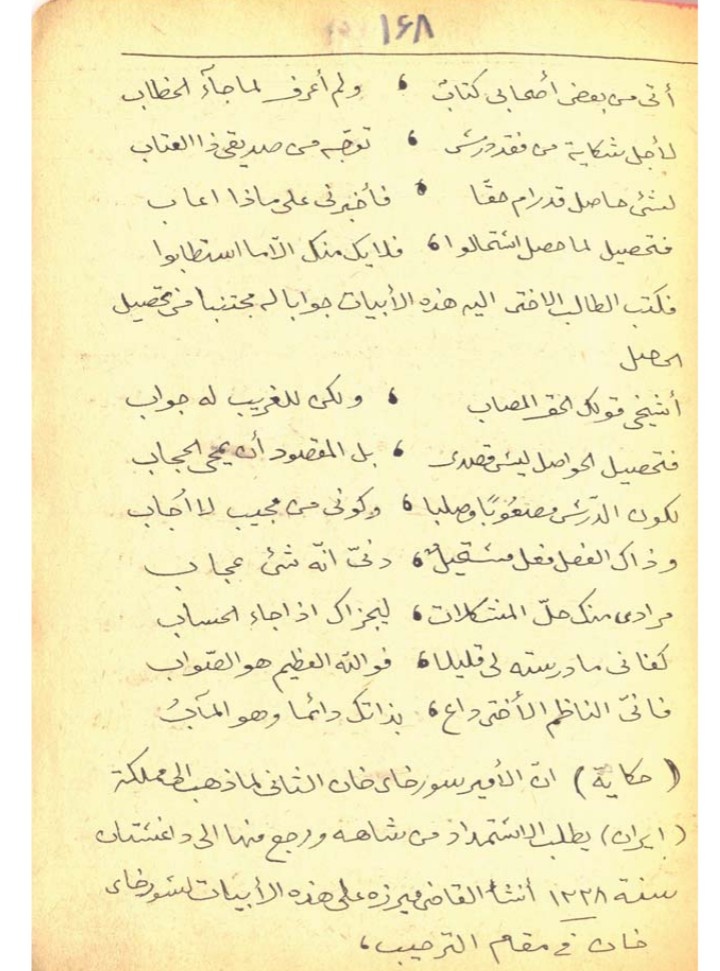 ١٦٨
أتى من بعض أصحابى كتاب ، ولم أعرف لما جآء الخطاب
لأجل شكاية من فقد درس ، توجّه من صديقى ذا العتاب
لشئ حاصل قد رام حقّا ، فأخبرنى على ماذا اعاب
فتحصيل لما حصل اشتمالوا ، فلا يك منك الّا ما استطابوا
فكتب الطالب الاختى اليه هذه الأبيات جوابا له مجتنبا فى تحصيل
الحصل
أشيخى قولك الحق المصاب ، ولكن للغريب له جواب
فتحصيل الحواصل ليس قصدى ، بل المقصود أن يمحى الحجاب
لكون الدّرس صعوبًا وصلبا ، وكونى من مجيب لا اُجاب
وذاك الفصل فعل مستحيل ، دنىّ انّه شئ عجاب
مرادى منك حلّ المشكلات ، ليجزاك اذا جاء الحساب
كفانى ما درسته لى قليلا ، فوالله العظيم هو الصّواب
فانىّ الناظم الأختى داع ، بذاتك دائما وهو المآبُ
(حكاية) انّ الأمير سورخاى خان الثانى لما ذهب الى مملكة
(ايران) يطلب الاستمداد من شاهه ورجع منها الى داغستان
سنة ١٢٢٨ أنشأ القاضى ميرزه على هذه الأبيات لسورخاى
خان فى مقام الترحيب ،